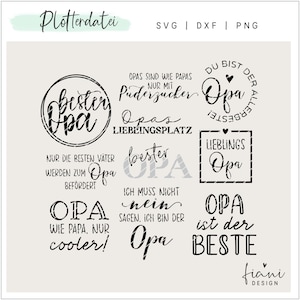 Plotterdatei
SVG | DXF | PNG
bester
Opa
OPAS SIND WIE PAPAS
NUR MIT
Puderzucker
DU BIST DER ALLERBESTE!
Opa
Opas
LIEBLINGSPLATZ
NUR DIE BESTEN VÄTER
WERDEN ZUM Opa
BEFÖRDERT
bester
OPA
LIEBLINGS
Opa
OPA
WIE PAPA, NUR
cooler!
ICH MUSS NICHT
nein
SAGEN, ICH BIN DER
Opa
OPA
ist der
BESTE
fiani
DESIGN